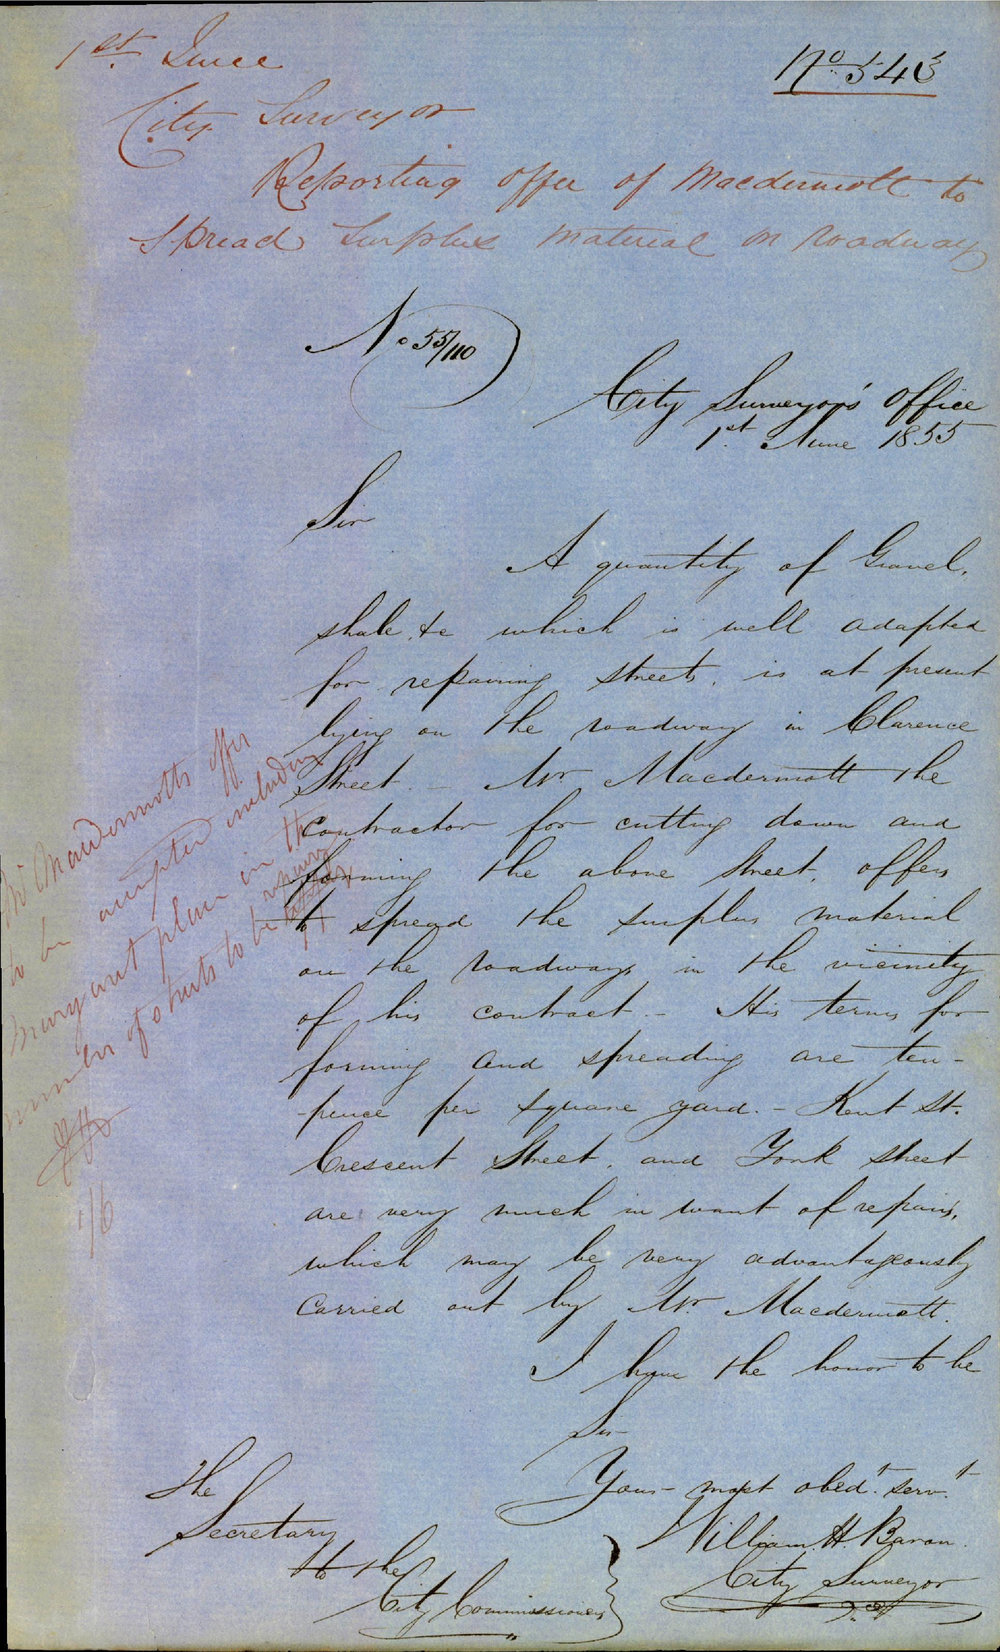 1st. June
No. 543
City Surveyor
Reporting offer of Macdermott to
spread surplus material on roadway
No 55/110
City Surveyor's Office
1st. June 1855
Sir
A quantity of Gravel,
shale, &c which is well adapted
for repairing streets, is at present
lying on the roadway in Clarence
Street. – Mr. Macdermott the
contractor for cutting down and
forming the above Street, offers
to spread the surplus material
on the roadways in the vicinity
of his contract. – His terms for
forming and spreading are ten-
-pence per square yard. – Kent St.
Crescent Street, and York street
are very much in want of repairs,
which may be very advantageously
carried out by Mr. Macdermott.
I have the honor to be
Sir
Your most obedt. servt.
William. H. Baron.
City Surveyor
The
Secretary
to the
City Commissioners
Mr Macdermotts offer
to be accepted including
Margaret place in the
number of streets to be
1/6